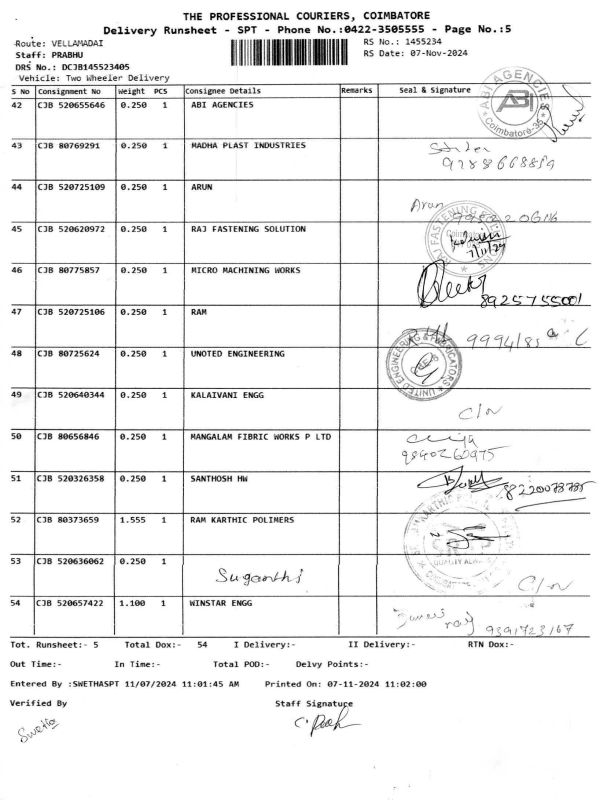 THE PROFESSIONAL COURIERS, COIMBATORE
Delivery Runsheet - SPT - Phone No.:0422-3505555 - Page No.:5
Route: VELLAMADAI
RS No.: 1455234
Staff: PRABHU
RS Date: 07-Nov-2024
DRS No.: DCJB145523405
Vehicle: Two Wheeler Delivery
S No Consignment No Weight PCS Consignee Details Remarks Seal & Signature
42 CJB 520655646 0.250 1 ABI AGENCIES
ABI AGENCIES
ABI
Coimbatore-35
43 CJB 80769291 0.250 1 MADHA PLAST INDUSTRIES
44 CJB 520725109 0.250 1 ARUN
Arun
45 CJB 520620972 0.250 1 RAJ FASTENING SOLUTION
7/11/24
46 CJB 80775857 0.250 1 MICRO MACHINING WORKS
8925755001
47 CJB 520725106 0.250 1 RAM
48 CJB 80725624 0.250 1 UNOTED ENGINEERING
UNITED ENGINEERING & FABRICATORS
49 CJB 520640344 0.250 1 KALAIVANI ENGG
C/N
50 CJB 80656846 0.250 1 MANGALAM FIBRIC WORKS P LTD
9840260975
51 CJB 520326358 0.250 1 SANTHOSH HW
8220078785
52 CJB 80373659 1.555 1 RAM KARTHIC POLIMERS
53 CJB 520636062 0.250 1
Suganthi
C/N
54 CJB 520657422 1.100 1 WINSTAR ENGG
9391723167
Tot. Runsheet:- 5 Total Dox:- 54 I Delivery:- II Delivery:- RTN Dox:-
Out Time:- In Time:- Total POD:- Delvy Points:-
Entered By :SWETHASPT 11/07/2024 11:01:45 AM Printed On: 07-11-2024 11:02:00
Verified By Staff Signature
Swetha